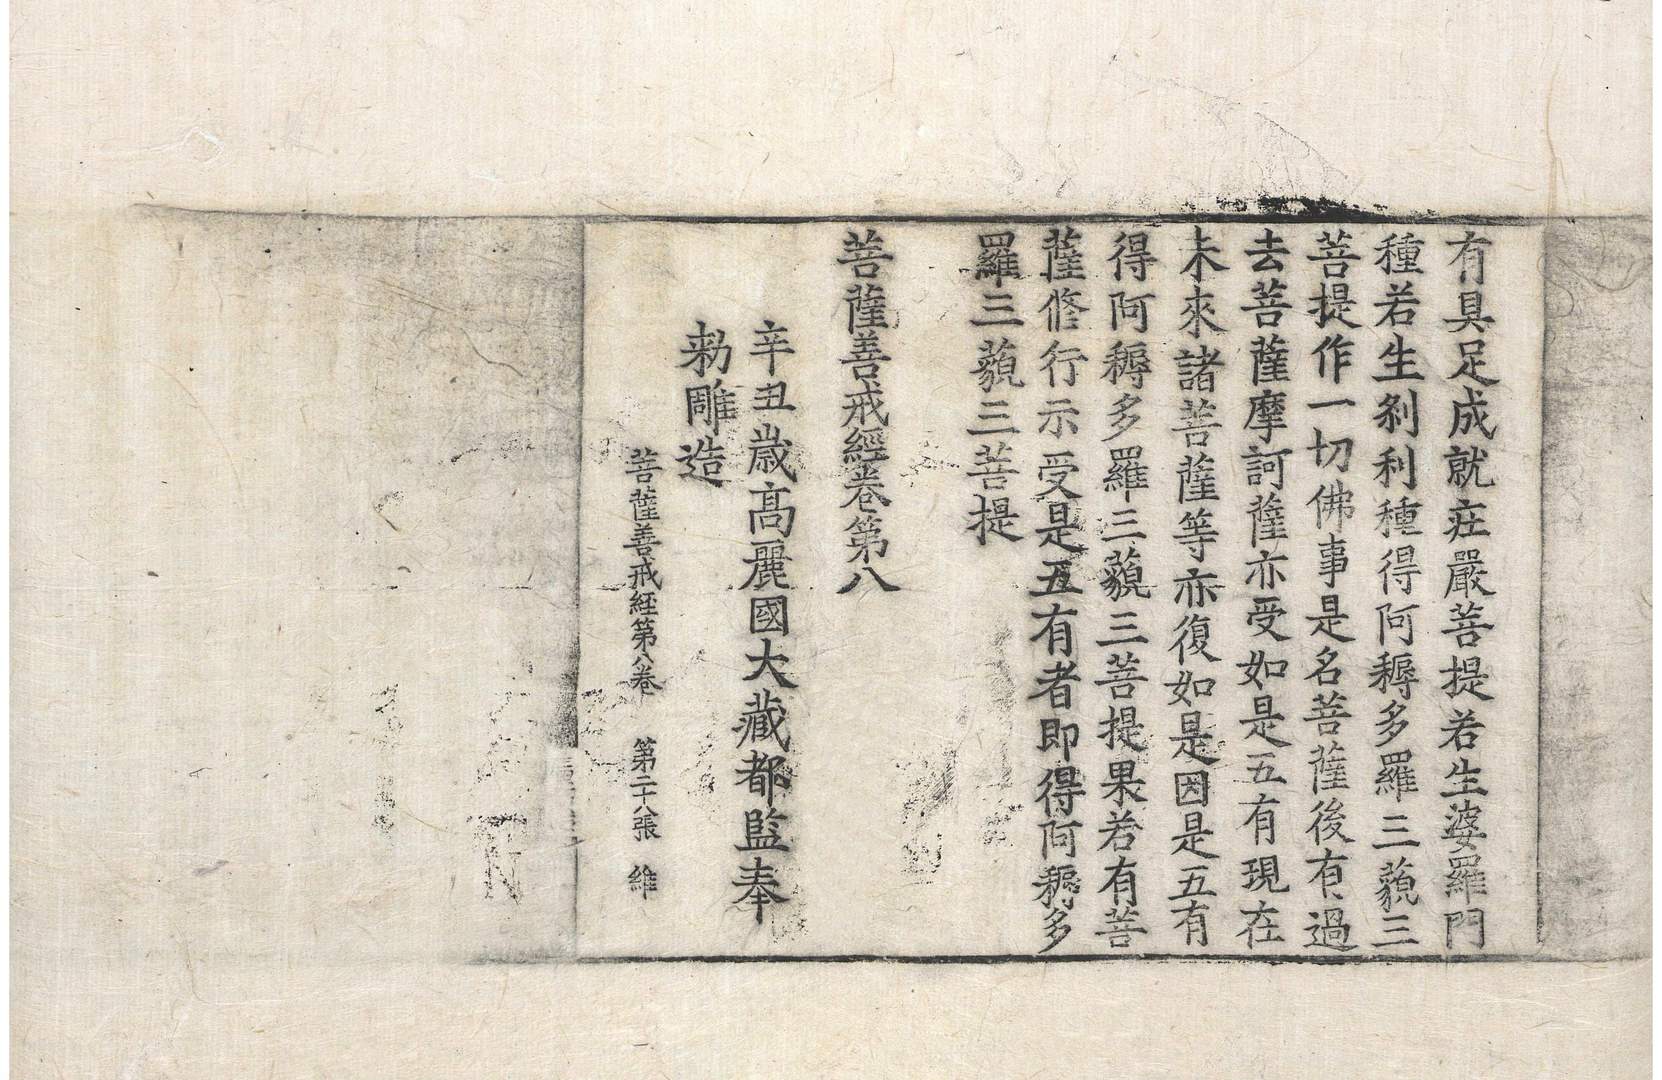 有具足成就莊嚴菩提若生婆羅門
種若生刹利種得阿耨多羅三藐三
菩提作一切佛事是名菩薩後有過
去菩薩摩訶薩亦受如是五有現在
未來諸菩薩等亦復如是因是五有
得阿耨多羅三藐三菩提果若有菩
薩修行示受是五有者即得阿耨多
羅三藐三菩提
菩薩善戒經卷第八
辛丑歲高麗國大藏都監奉
勑雕造
菩薩善戒経第八卷 第二十八張 維